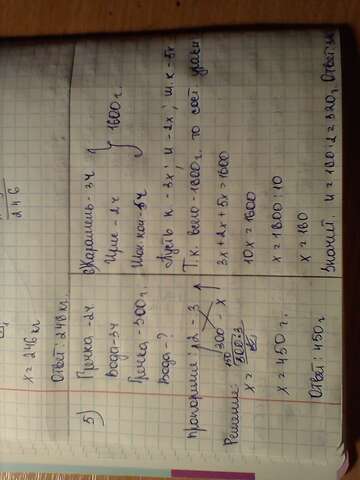 246
x = 246 кг
Ответ: 246 кг.
5) Гречка - 2ч
Вода - 3ч
Гречка - 300г.
Вода - ?
пропорция: 2 - 3
300 - x
Решение:
x = 300·3
x = 450 г.
Ответ: 450 г
6) Карамель - 3ч
Ирис - 2ч
Шоколад - 5ч
1600 г.
Пусть к - 3x; и - 2x; ш.к - 5x
Т.к. всего - 1600г. то сост. уравн
3x + 2x + 5x = 1600
10x = 1600
x = 1600 : 10
x = 160
Значит. и = 160 · 2 = 320г. Ответ: